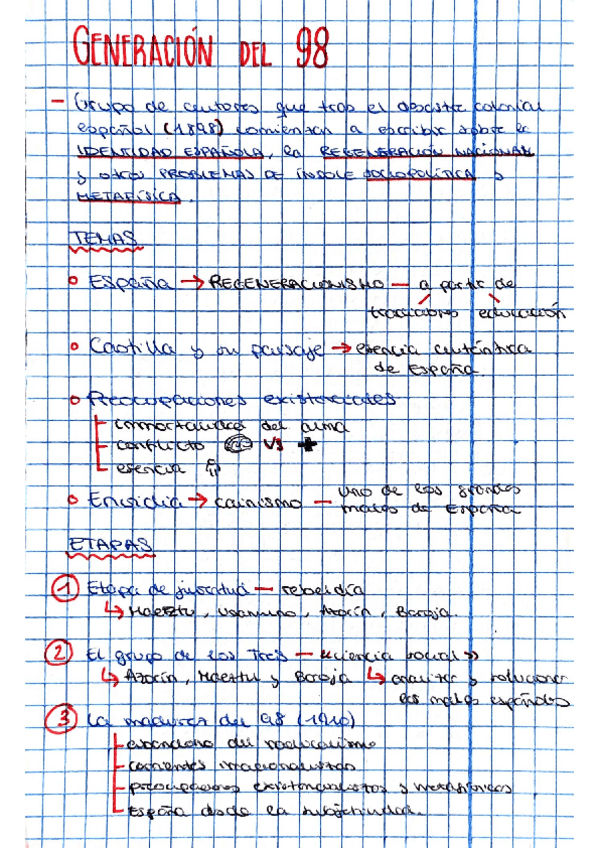 GENERACIÓN DEL 98
– Grupo de autores que tras el desastre colonial
español (1898) comienzan a escribir sobre la
IDENTIDAD ESPAÑOLA, la REGENERACIÓN NACIONAL
y otros PROBLEMAS DE ÍNDOLE SOCIOPOLÍTICA y
METAFÍSICA.
TEMAS
España → REGENERACIONISMO — a partir de
tradiciones educación
Castilla y su paisaje → esencia auténtica
de España.
Preocupaciones existenciales
inmortalidad del alma
conflicto VS
esencia
Envidia → cainismo — uno de los grandes
males de España
ETAPAS
1 Etapa de juventud — rebeldía
↳ Maeztu, Unamuno, Azorín, Baroja.
2 El grupo de los Tres — «ciencia social»
↳ Azorín, Maeztu y Baroja ↳ analizar y solucionar
los males españoles
3 La madurez del 98 (1910)
abandono del radicalismo
corrientes irracionalistas
preocupaciones existencialistas y metafísicas
España desde la subjetividad.